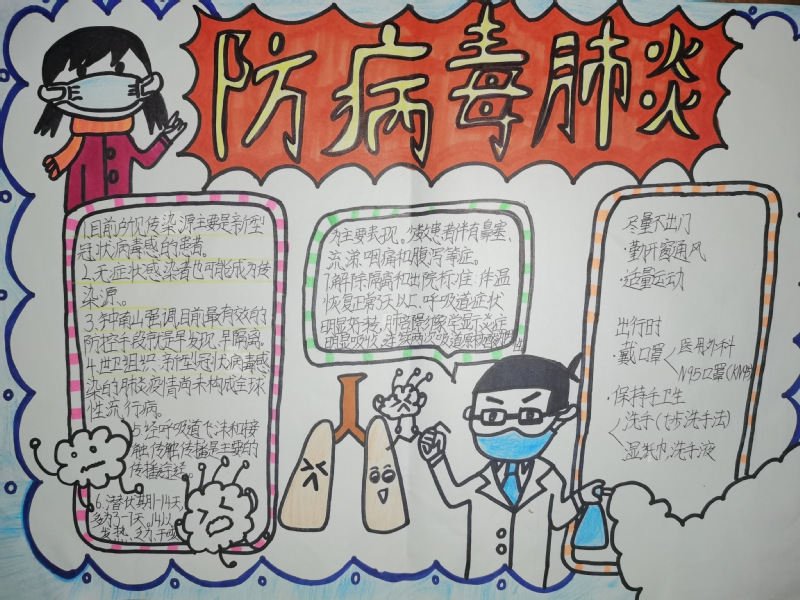 防病毒肺炎
1.目前所见传染源主要是新型
冠状病毒感的患者。
2.无症状感染者也可能成为传
染源。
3.钟南山强调,目前最有效的
防控手段就是早发现、早隔离。
4.世卫组织:新型冠状病毒感
染的肺炎疫情尚未构成全球
性流行病。
5.经呼吸道飞沫和接
触传触传播是主要的
传播途经。
6.潜伏期1-14天,
多为3-7天。
发热、乏力、干咳
为主要表现。少数患者伴有鼻塞、
流涕咽痛和腹泻等症。
7.解除隔离和出院标准:体温
恢复正常3天以上、呼吸道症状
明显好转,肺部影像学显示炎症
明显吸收,连续两次呼吸道
尽量不出门
·勤开窗通风
·适量运动
出行时
·戴口罩
医用外科
N95口罩
·保持手卫生
洗手(七步洗手法)
湿纸巾,洗手液